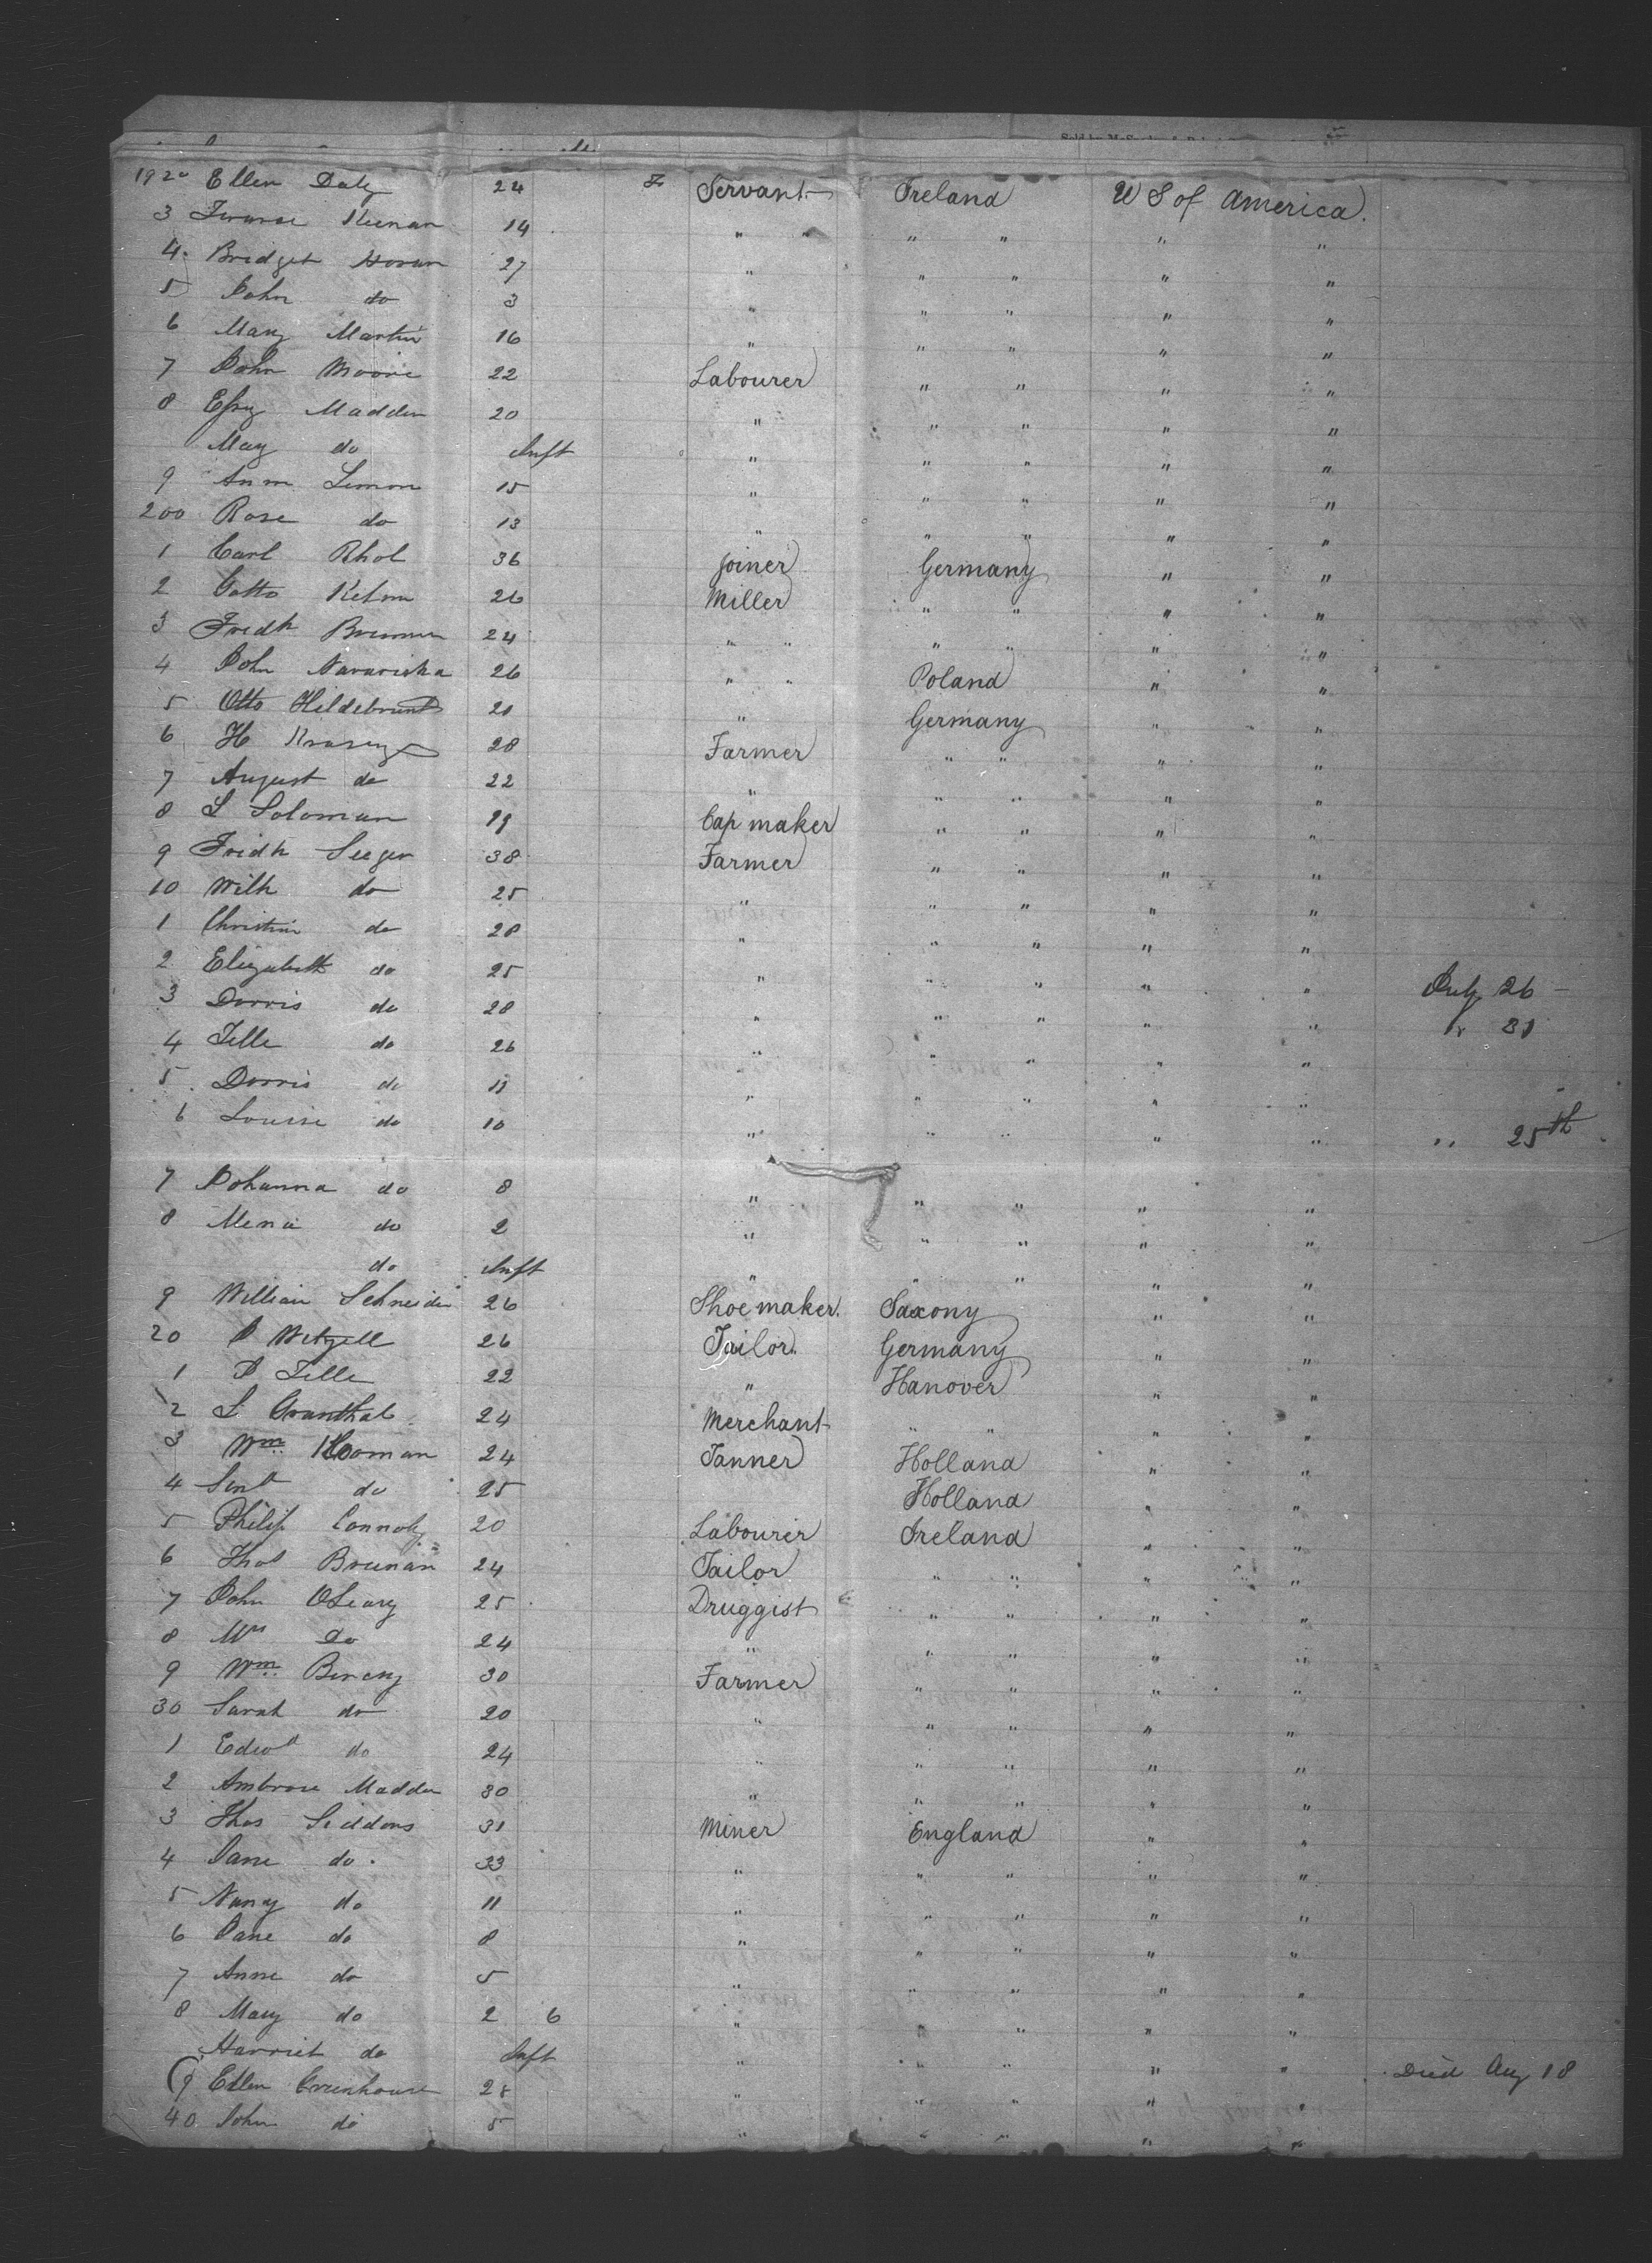 192 Ellen Daly 24 F Servant Ireland U S of America.
3 Keenan 14 " " " " " "
4 Bridget Horan 27 " " " " "
5 John do 3 " " " " "
6 Mary Martin 16 " " " " "
7 John Moore 22 Labourer " " " "
8 Madden 20 " " " " "
May do Inft " " " " "
9 Ann Lemon 15 " " " " "
200 Rose do 13 " " " " "
1 Carl Rhol 36 Joiner Germany " "
2 Gotto 26 Miller " " " "
3 Fredk 24 " " " " " "
4 John Navariska 26 " " Poland " "
5 Otto Hildebrant 21 " Germany " "
6 H 28 Farmer " " " "
7 August do 22 " " " " "
8 S Soloman 19 Cap maker " " " "
9 Fridk Seeger 38 Farmer " " " "
10 Wilh do 25 " " " " "
1 Christin do 28 " " " " "
2 Elizabeth do 25 " " " " " July 26 –
3 Dorris do 28 " " " " " " 31
4 Tille do 26 " " " " "
5 Dorris do 11 " " " " "
6 Louise do 10 " " " " " " 25th
7 Johanna do 8 " " " " "
8 Mena do 2 " " " " "
do Inft " " " " "
9 William Schneider 26 Shoe maker. Saxony " "
20 J Wetzell 26 Tailor. Germany " "
1 J Tille 22 " Hanover " "
2 S Granthal 24 Merchant " " " "
3 Wm Kooman 24 Tanner Holland " "
4 do 25 Holland " "
5 Philip Connoly 20 Labourer Ireland " "
6 Thos Brenan 24 Tailor " " " "
7 John OLeary 25 Druggist " " " "
8 Mrs Do 24 " " " " "
9 Wm 30 Farmer " " " "
30 Sarah do 20 " " " " "
1 Edwd do 24 " " " " "
2 Ambrose Madden 30 " " " " "
3 Thos Siddons 31 Miner England " "
4 Jane do 33 " " " " "
5 Nancy do 11 " " " " "
6 Jane do 8 " " " " "
7 Anne do 5 " " " " "
8 Mary do 2 6 " " " " "
Harriet do Inft " " " " " Died Aug 18
9 Ellen Greenhouse 28 " " " " "
40 John do 5 " " " " "